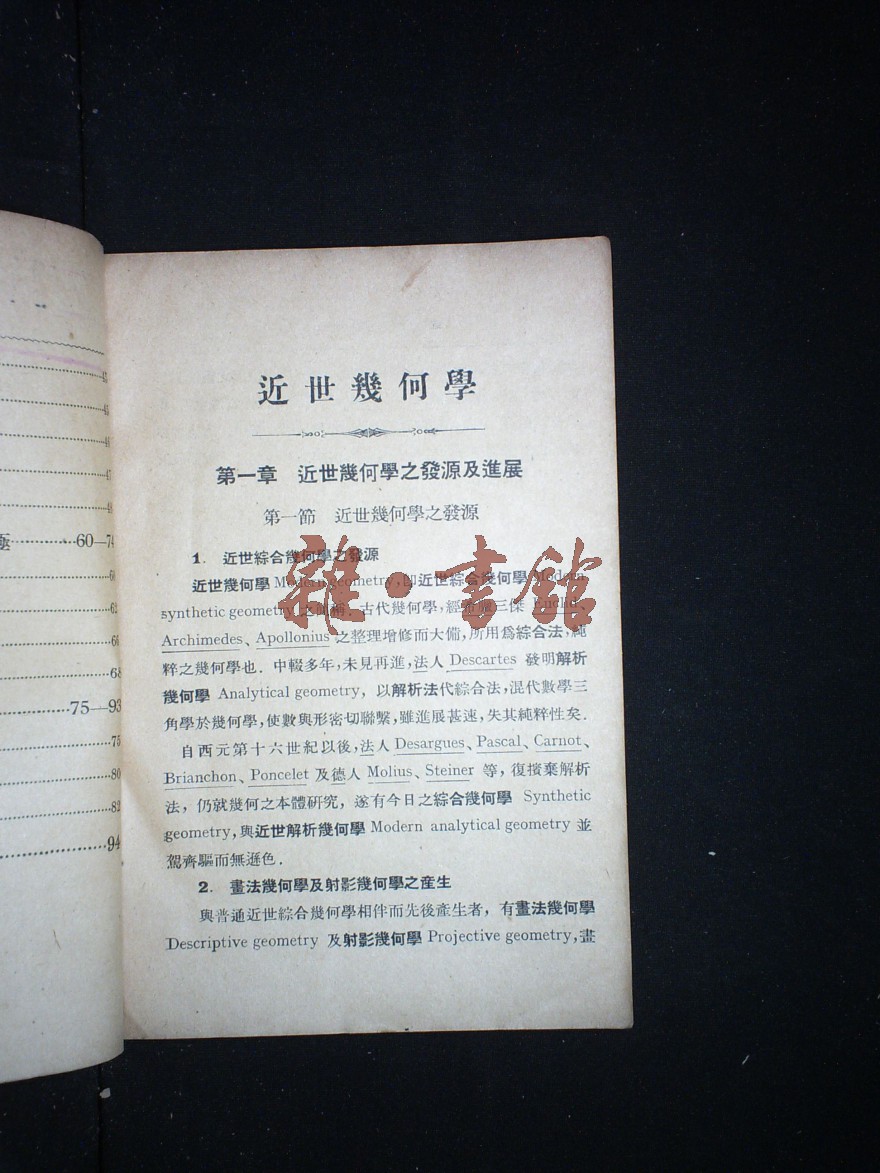 45
45
46
47
48
極 60—74
60
62
66
68
75—93
75
80
82
94
近世幾何學
第一章 近世幾何學之發源及進展
第一節 近世幾何學之發源
1. 近世綜合幾何學之發源
近世幾何學 Modern geometry，即近世綜合幾何學 Modern
synthetic geometry 之簡稱．古代幾何學，經希臘三傑 Euclid、
Archimedes、Apollonius 之整理增修而大備，所用爲綜合法，純
粹之幾何學也．中輟多年，未見再進，法人 Descartes 發明解析
幾何學 Analytical geometry，以解析法代綜合法，混代數學三
角學於幾何學，使數與形密切聯繫，雖進展甚速，失其純粹性矣．
自西元第十六世紀以後，法人 Desargues、Pascal、Carnot、
Brianchon、Poncelet 及德人 Molius、Steiner 等，復擯棄解析
法，仍就幾何之本體研究，遂有今日之綜合幾何學 Synthetic
geometry，與近世解析幾何學 Modern analytical geometry 並
駕齊驅而無遜色．
2. 畫法幾何學及射影幾何學之產生
與普通近世綜合幾何學相伴而先後產生者，有畫法幾何學
Descriptive geometry 及射影幾何學 Projective geometry，畫
雜·書館